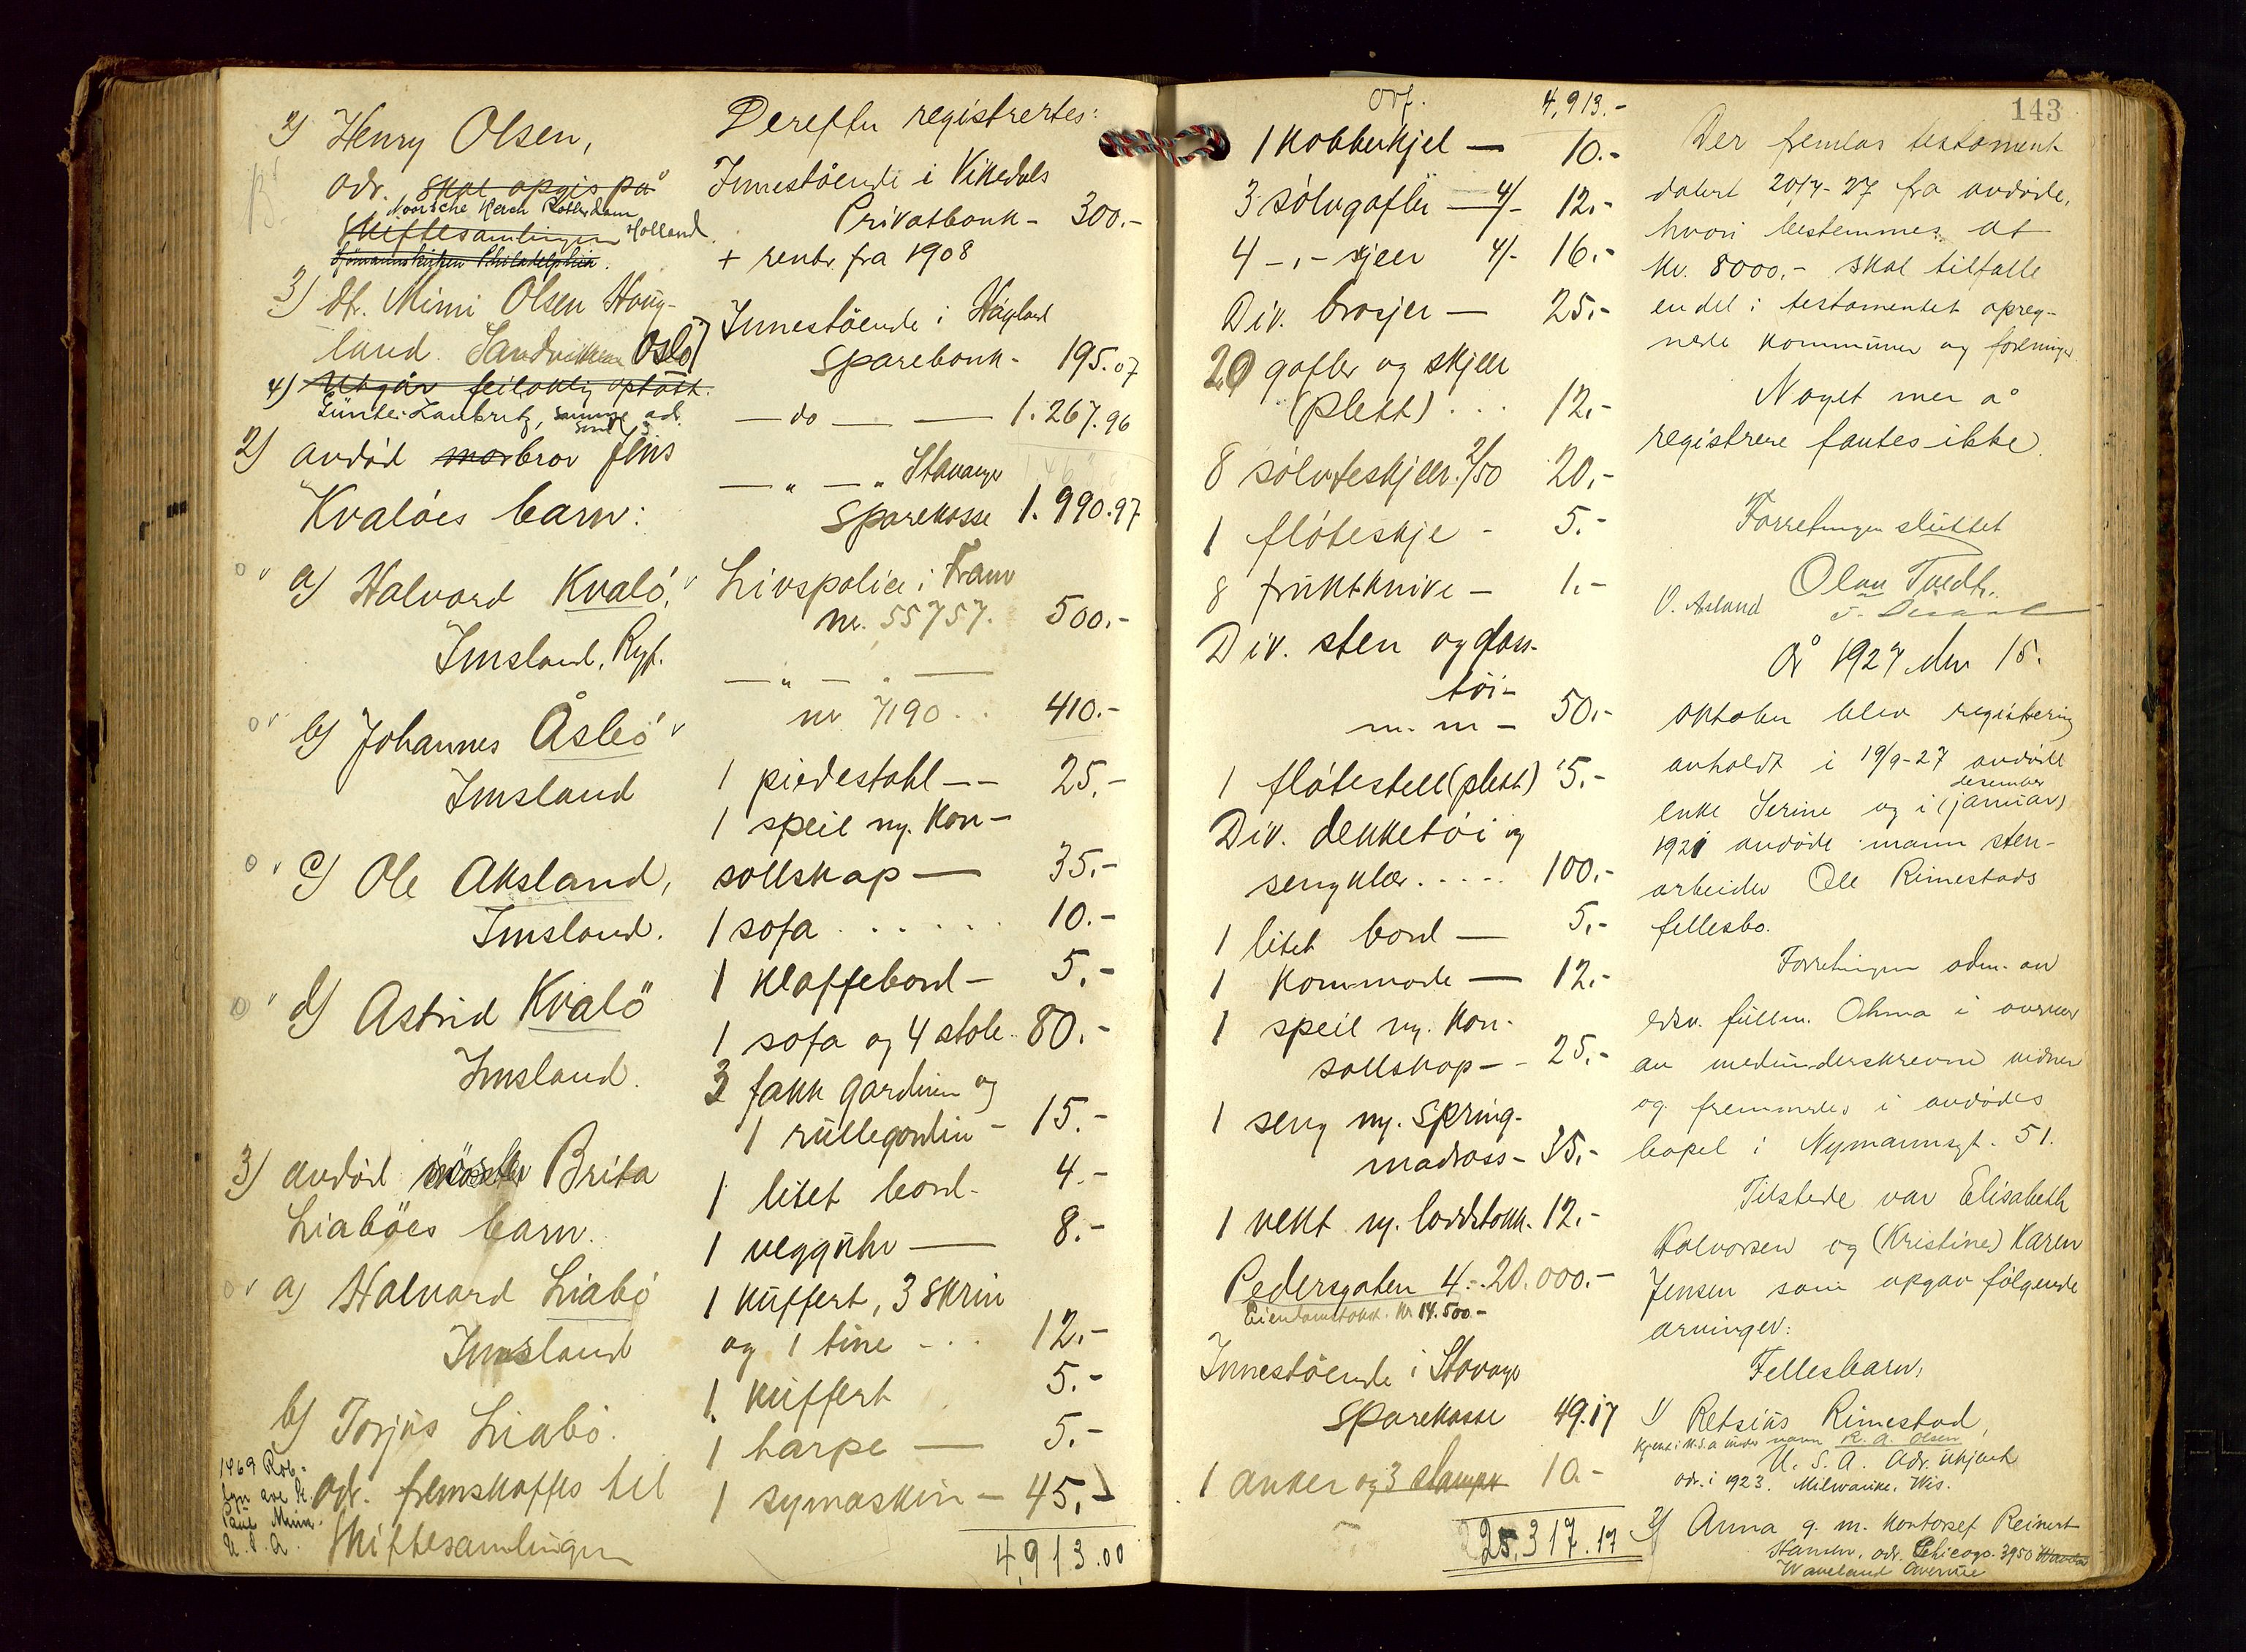 2) Henry Olsen,
adr. skal opgis på
Norsche Kerch Rotterdam
Skiftesamlingen Holland
Sjömannskirken Philadelphia.
3) Mimi Olsen Haug-
land. Sandviken Oslo
4) Utgår feilaktig optatt.
Günter Lankritz, samme adr.
2) avdöd morbror Jens
Kvalöes barn:
a) Halvard Kvalö,
Imsland, Ryf.
b) Johannes Åsbö
Imsland
c) Ole Aksland,
Imsland.
d) Astrid Kvalö
Imsland.
3) avdöd Brita
Liaböes barn.
a) Halvard Liabö
Imsland
b) Torjus Liabö.
adr. fremskaffes til
Skiftesamlingen
1469 Rob-
lyn ave St.
Paul Minn.
U. S. A.
Derefter registrertes:
Innestående i Vikedals
Privatbank - 300.-
+ renter fra 1908
Innestående i Høyland
Sparebank - 195.07
— do — — 1.267.96
— " — " Stavanger
Sparekasse 1.990.97
Livspolice i Fram
nr. 55757. 500.-
— " — " —
nr 7190 . . 410.-
1 piedestahl - - 25.-
1 speil m. kon-
sollskap — 35.-
1 sofa . . . . . . 10.-
1 klaffebord - 5.-
1 sofa og 4 stole . 80.-
3 fakk gardiner og
1 rullegardin - 15.-
1 litet bord - 4.-
1 vegguhr — 8.-
1 kuffert, 3 skrin
og 1 tine - . . 12.-
1 kuffert 5.-
1 harpe — 5.-
1 symaskin - 45.-
4,913.00
ovf. 4,913.-
1 kobberkjel — 10.-
3 sölvgafler — 4/- 12.-
4 -„- skjeer 4/- 16.-
Div. brosjer — 25.-
20 gafler og skjeer
(plett) . . . 12.-
8 sölvteskjeer 2/50 20.-
1 flöteskje - 5.-
8 fruktknive - 1.-
Div. sten og glass-
töi -
m. m - 50.-
1 flötestell (plett) 5.-
Div. dekketöi og
sengklær . . . . . 100.-
1 litet bord — 5.-
1 kommode — 12.-
1 speil m. kon-
sollskap - - 25.-
1 seng m. spring-
madrass - 35.-
1 vekt m. loddstokk. 12.-
Pedersgaten 4 - 20.000.-
Eiendomstakst. kr 14.500.-
Innestående i Stavanger
Sparekasse 49.17
1 anker og 3 stamper 10.-
25.317.17
143
Der fremlas testament
datert 20/7-27 fra avdöde,
hvori bestemmes at
kr. 8000.- skal tilfalle
en del i testamentet opreg-
nede kommuner og foreninger.
Noget mer å
registrere fantes ikke.
Forretningen sluttet
Olav Tvedt.
O. Åsland
År 1927 den 15.
oktober blev registrering
avholdt i 19/9-27 avdöde
desember
enke Serine og i (januar)
1921 avdöde mann sten-
arbeider Ole Rimestads
fellesbo.
Forretningen adm. av
edsv. fullm. Ohma i overvær
av medunderskrevne vidner
og fremmedes i avdödes
bopel i Nymannsgt. 51.
Tilstede var Elisabeth
Halvorsen og (Kristine) Karen
Jensen som opgav fölgende
arvinger:
Fellesbarn,
1) Retsius Rimestad,
Kjent i U.S.A under navn R. A. Olsen
U. S. A. Adr. ukjent
adr. i 1923. Milwauke, Wis.
2) Anna g. m. kontorsjef Reinert
Hansen, adr. Chicago. 3950
Waveland Avenue